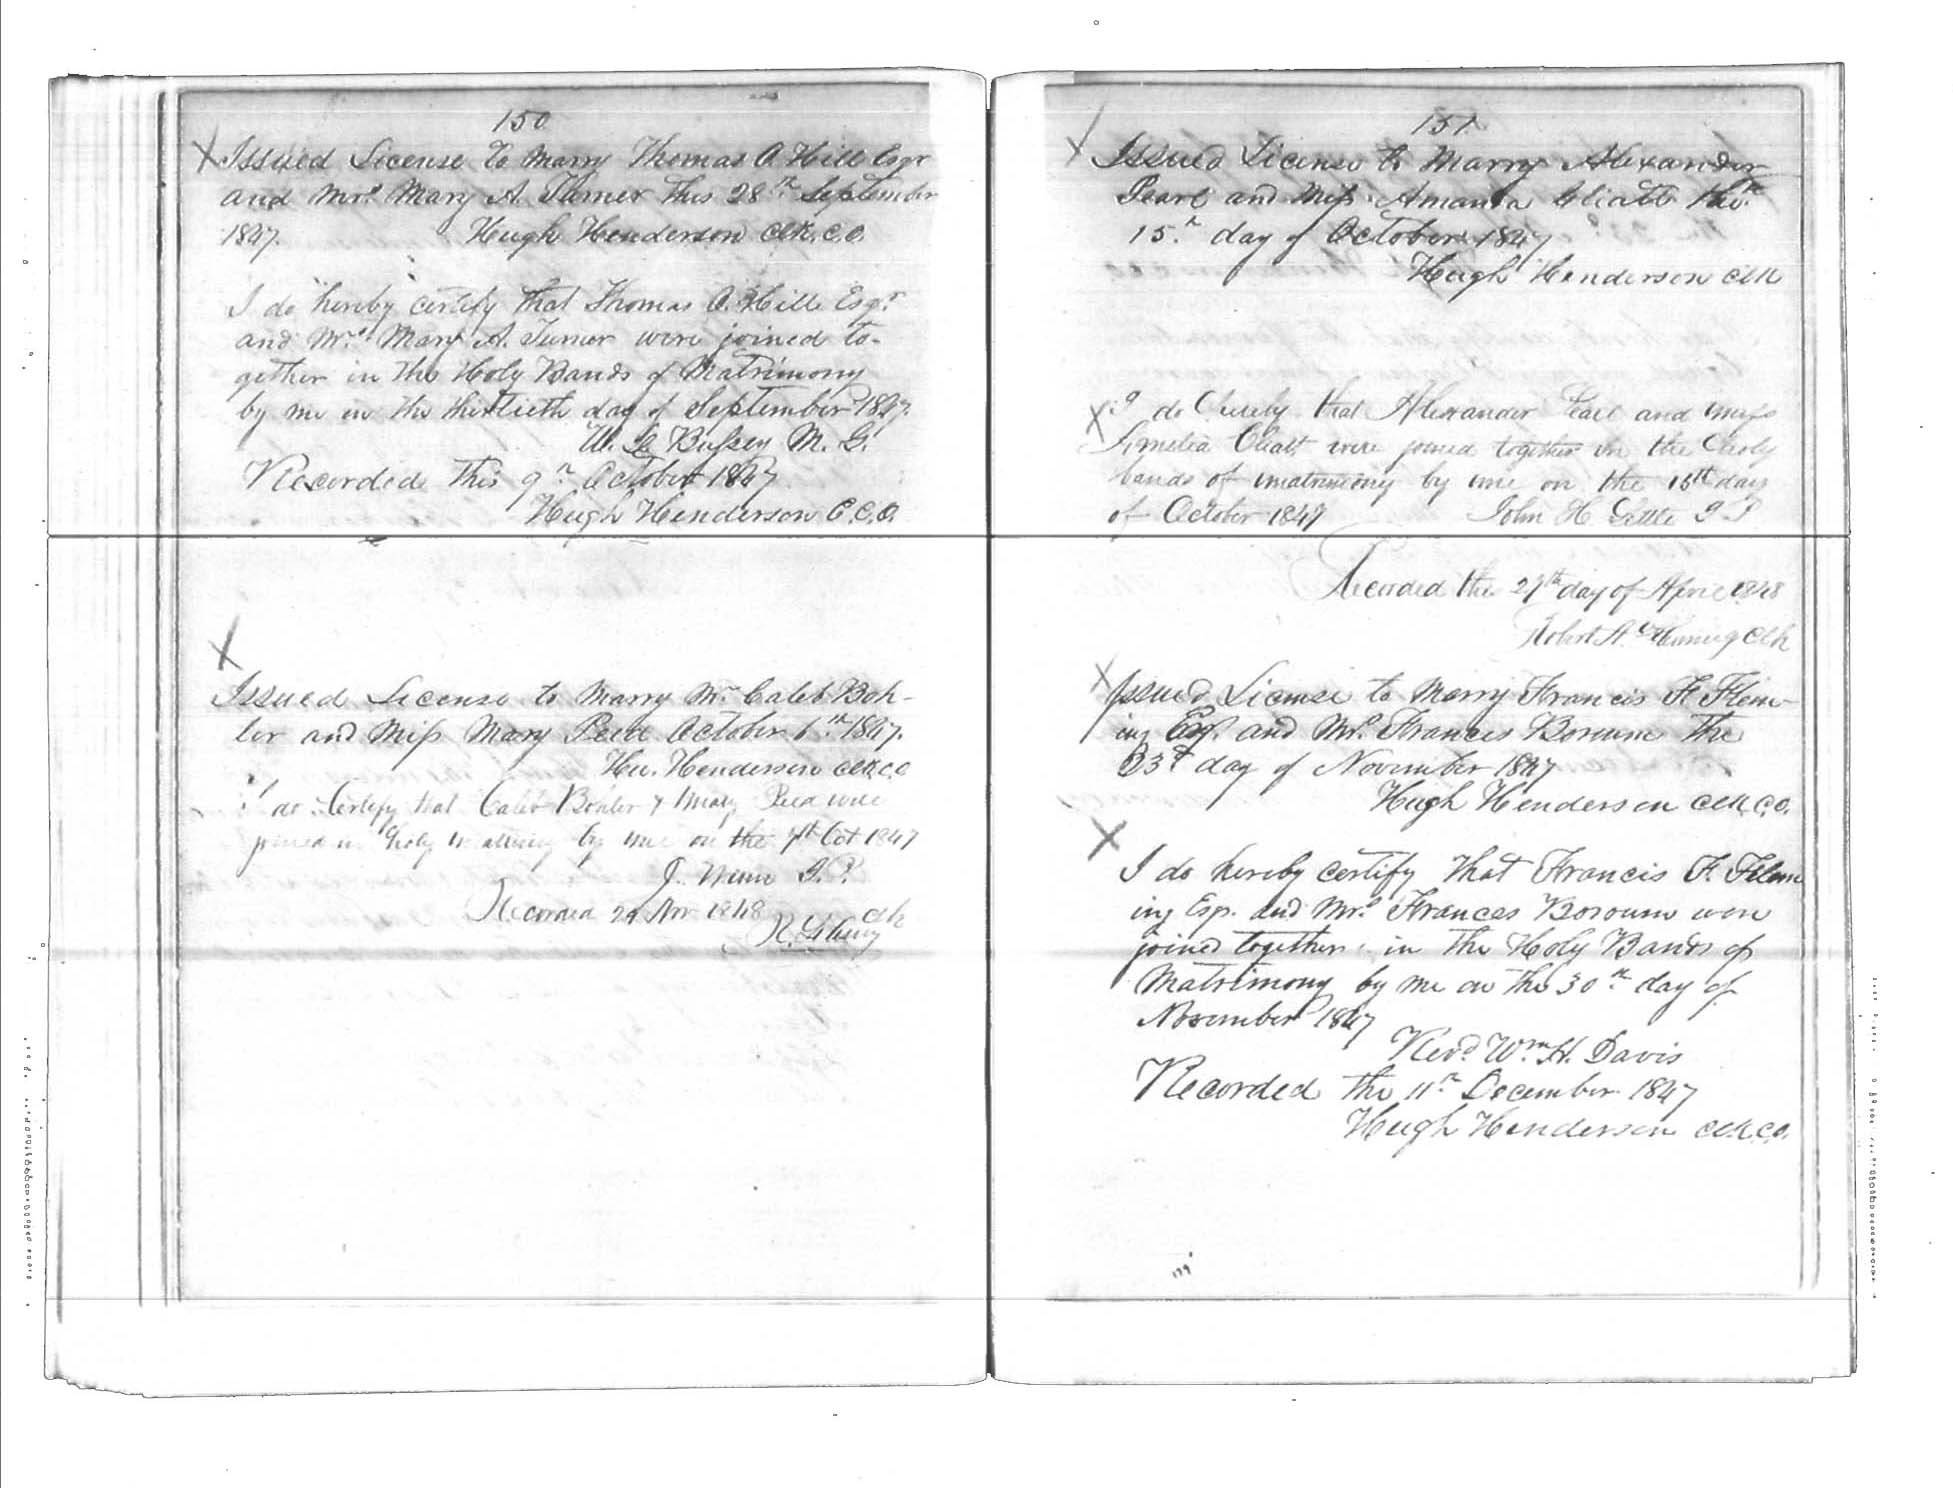 150
Issued License to Marry Thomas A. Hill Esqr
and Mrs. Mary A. Turner this 28th September
1847. Hugh Henderson Clk. C. O.
I do hereby certify that Thomas A. Hill Esqr
and Mrs. Mary A. Turner were joined to-
gether in the Holy Bands of Matrimony
by me on the thirtieth day of September 1847.
W. L. Bussey M. G.
Recorded this 9th October 1847
Hugh Henderson C. C. O.
Issued License to Marry Mr Caleb Boh-
ler and Miss Mary October 6th 1847.
Hu. Henderson Clk C.O
I do Certify that Caleb Bohler & Mary were
joined in holy by me on the 7th Oct 1847
J. P.
Recorded 29 1848
Clk
151
Issued License to Marry Alexander
Pearl and Miss Amanda the
15th day of October 1847
Hugh Henderson Clk
I do that Alexander and Miss
were joined together in the Holy
bands of matrimony by me on the 15th day
of October 1847 John H J P
Recorded the 29th day of April 1848
Robert Clk
Issued License to Marry Francis F. Flem-
ing Esq. and Mrs. Frances Boroum the
23d day of November 1847
Hugh Henderson Clk. C. O.
I do hereby certify that Francis F. Flem
ing Esq. and Mrs. Frances Boroum were
joined together in the Holy Bands of
Matrimony by me on the 30th day of
November 1847
Revd Wm H. Davis
Recorded the 11th December 1847
Hugh Henderson Clk. C. O.